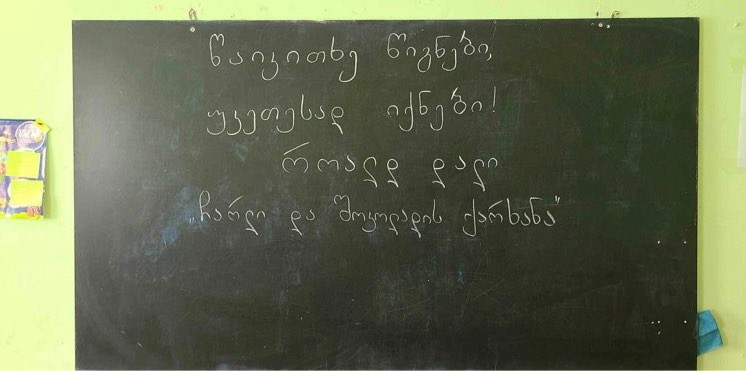 წაიკითხე წიგნები,
უკეთესად იქნები!
როალდ დალი
„ჩარლი და შოკოლადის ქარხანა“